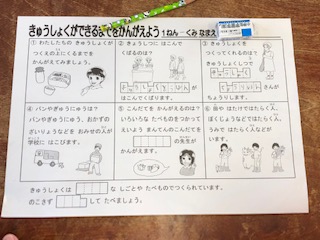 きゅうしょくができるまでをかんがえよう 1ねん くみ なまえ
① わたしたちの きゅうしょくが
つくえの上にくるまでを
かんがえてみましょう。
② きょうしつに はこんで
くばるのは?
きゅうしょくとうばん が
はこんでくばります。
③ きゅうしょくを
つくってくれるのは?
きゅうしょく
さんが
ちょうりします。
④ パンやぎゅうにゅうは?
パンやぎゅうにゅう、おかずの
ざいりょうなどを おみせの人が
学校に はこびます。
⑤ こんだてを かんがえるのは?
いろいろな たべものをつかって
えいよう まんてんのこんだてを
の先生が
かんがえます。
⑥ 田や はたけではたらく人、
ぼくじょうなどではたらく人、
うみで はたらく人などが
います。
きゅうしょくは
な しごとや たべものでつくられています。
のこさず
して たべましょう。